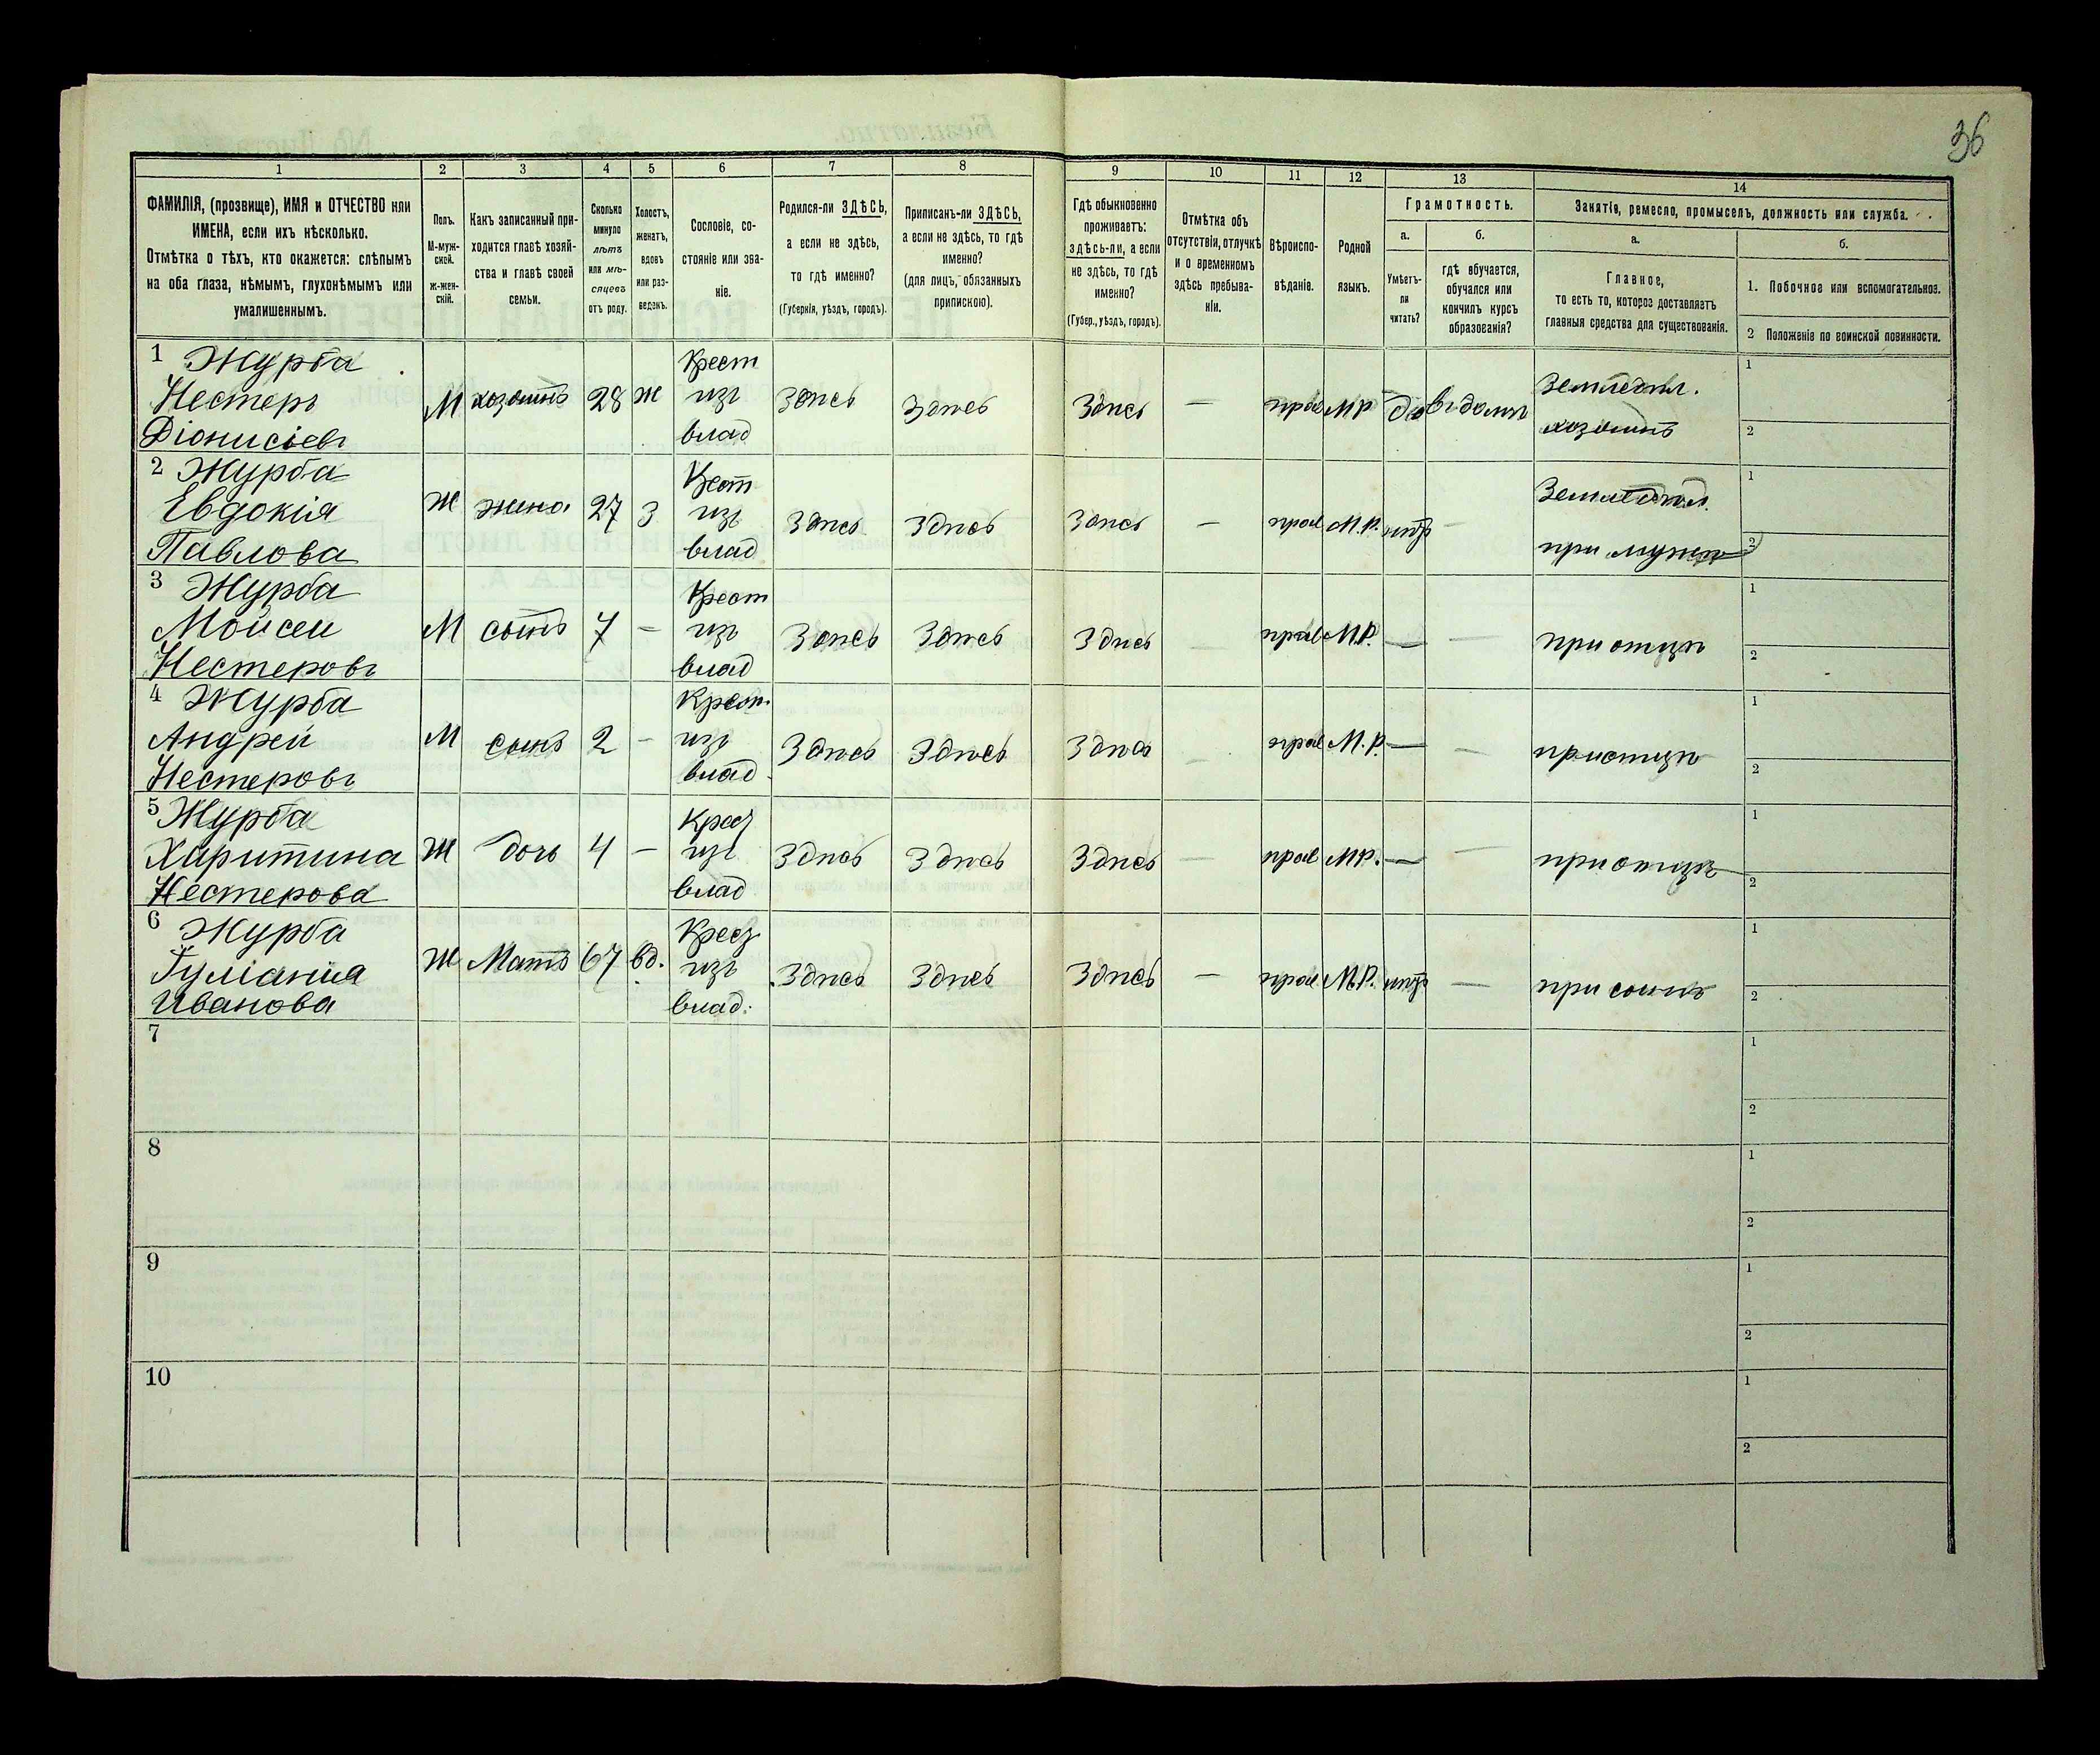 36
1 2 3 4 5 6 7 8 9 10 11 12 13 14
ФАМИЛІЯ, (прозвище), ИМЯ и ОТЧЕСТВО или
ИМЕНА, если ихъ нѣсколько.
Отмѣтка о тѣхъ, кто окажется: слѣпымъ
на оба глаза, нѣмымъ, глухонѣмымъ или
умалишеннымъ.
Полъ.
М-муж-
ской.
ж-жен-
скій.
Какъ записанный при-
ходится главѣ хозяй-
ства и главѣ своей
семьи.
Сколько
минуло
лѣтъ
или мѣ-
сяцевъ
отъ роду.
Холостъ,
женатъ,
вдовъ
или раз-
веденъ.
Сословіе, со-
стояніе или зва-
ніе.
Родился-ли ЗДѢСЬ,
а если не здѣсь,
то гдѣ именно?
(Губернія, уѣздъ, городъ).
Приписанъ-ли ЗДѢСЬ,
а если не здѣсь, то гдѣ
именно?
(для лицъ, обязанныхъ
припискою).
Гдѣ обыкновенно
проживаетъ:
здѣсь-ли, а если
не здѣсь, то гдѣ
именно?
(Губер., уѣздъ, городъ).
Отмѣтка объ
отсутствіи, отлучкѣ
и о временномъ
здѣсь пребыва-
ніи.
Вѣроиспо-
вѣданіе.
Родной
языкъ.
Грамотность.
а.
Умѣетъ-
ли
читать?
б.
гдѣ обучается,
обучался или
кончилъ курсъ
образованія?
Занятіе, ремесло, промыселъ, должность или служба.
а.
Главное,
то есть то, которое доставляетъ
главныя средства для существованія.
б.
1. Побочное или вспомогательное.
2 Положеніе по воинской повинности.
1 Журба
Нестеръ
Діонисіевъ
М хозяинъ 28 ж
Крест
изъ
влад
Здѣсь Здѣсь Здѣсь — прав МР да въ домѣ
Земледѣл.
хозяинъ
1
2
2 Журба
Евдокія
Павлова
Ж жена 27 З
Крест
изъ
влад
Здѣсь Здѣсь Здѣсь — прав М.Р. нѣтъ —
Земледѣл.
при мужѣ
1
2
3 Журба
Мойсей
Нестеровъ
М сынъ 7 —
Крест
изъ
влад
Здѣсь Здѣсь Здѣсь — прав М.Р. — —
при отцѣ
1
2
4 Журба
Андрей
Нестеровъ
М сынъ 2 —
Крест.
изъ
влад
Здѣсь Здѣсь Здѣсь — прав М.Р. — —
при отцѣ
1
2
5 Журба
Харитина
Нестерова
Ж дочь 4 —
Крест
изъ
влад
Здѣсь Здѣсь Здѣсь — прав МР. — —
при отцѣ
1
2
6 Журба
Гуліанія
Иванова
Ж Мать 67 вд.
Крест
изъ
влад.
Здѣсь Здѣсь Здѣсь — прав. М.Р. нѣтъ —
при сынѣ
1
2
7
1
2
8
1
2
9
1
2
10
1
2